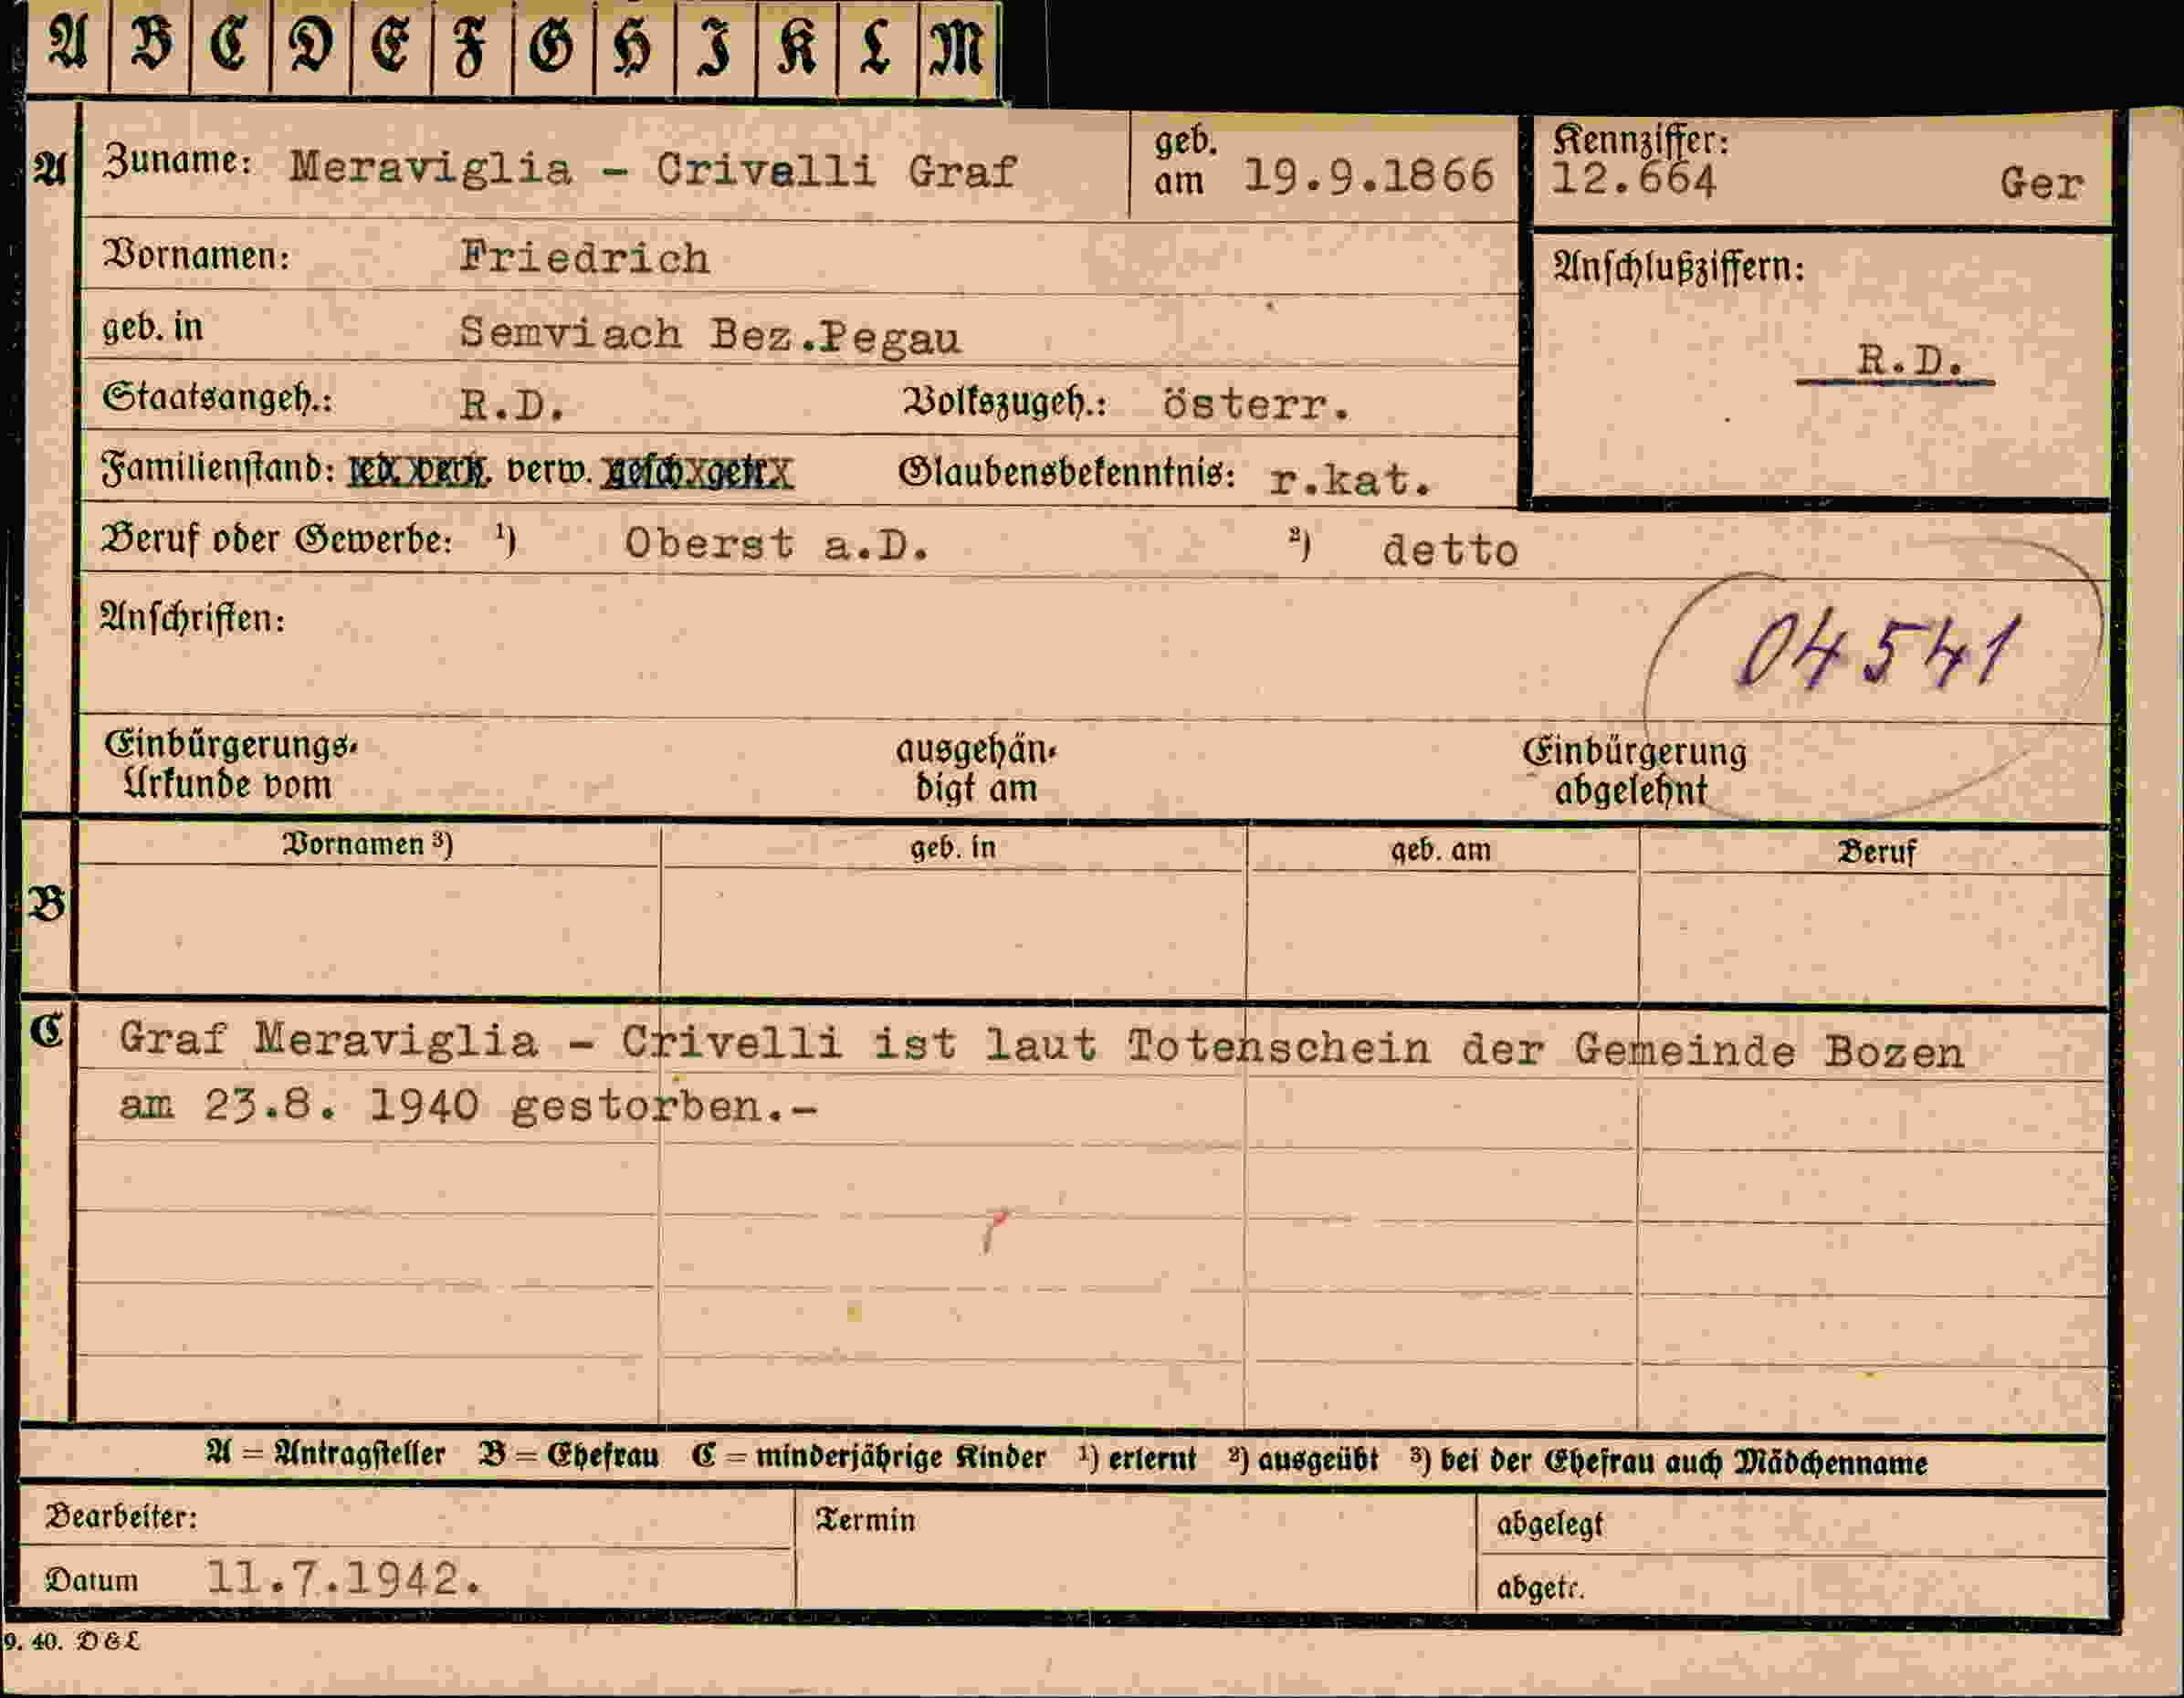 A B C D E F G H I K L M
A Zuname: Meraviglia - Crivelli Graf geb. am 19.9.1866 Kennziffer: 12.664 Ger
Vornamen: Friedrich
Anschlußziffern:
geb. in Semviach Bez.Pegau
R.D.
Staatsangeh.: R.D. Volkszugeh.: österr.
Familienstand: led. verh. verw. gesch. getr. Glaubensbekenntnis: r.kat.
Beruf oder Gewerbe: ¹) Oberst a.D. ²) detto
Anschriften:
04541
Einbürgerungs-
Urkunde vom
ausgehän-
digt am
Einbürgerung
abgelehnt
B Vornamen ³) geb. in geb. am Beruf
C Graf Meraviglia - Crivelli ist laut Totenschein der Gemeinde Bozen
am 23.8. 1940 gestorben.-
A = Antragsteller B = Ehefrau C = minderjährige Kinder ¹) erlernt ²) ausgeübt ³) bei der Ehefrau auch Mädchenname
Bearbeiter: Termin abgelegt
Datum 11.7.1942. abgetr.
9. 40. D&L